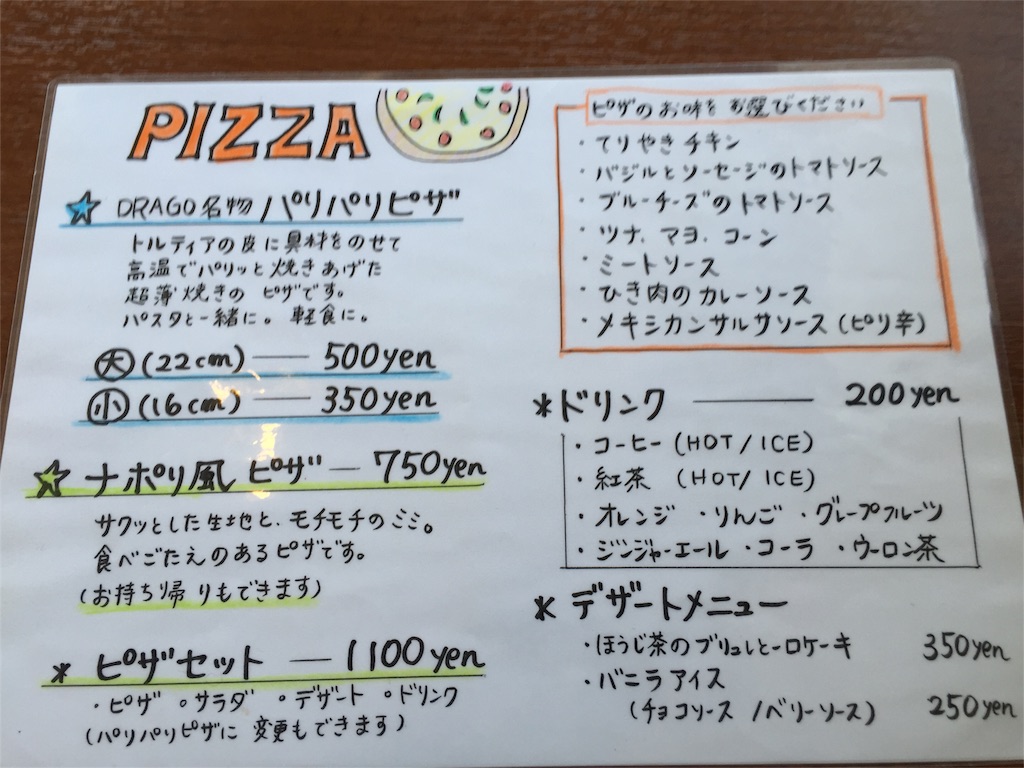 PIZZA
☆ DRAGO名物 パリパリピザ
トルティアの皮に具材をのせて
高温でパリッと焼きあげた
超薄焼きの ピザです。
パスタと一緒に。軽食に。
大(22cm) ── 500yen
小(16cm) ── 350yen
☆ ナポリ風 ピザ ─ 750yen
サクッとした生地と、モチモチのミミ。
食べごたえのあるピザです。
(お持ち帰りもできます)
* ピザセット ─ 1100yen
・ピザ ・サラダ ・デザート ・ドリンク
(パリパリピザに変更もできます)
ピザのお味をお選びください
・てりやきチキン
・バジルとソーセージのトマトソース
・ブルーチーズのトマトソース
・ツナ、マヨ、コーン
・ミートソース
・ひき肉のカレーソース
・メキシカンサルサソース(ピリ辛)
* ドリンク ── 200yen
・コーヒー (HOT/ICE)
・紅茶 (HOT/ICE)
・オレンジ ・りんご ・グレープフルーツ
・ジンジャーエール ・コーラ ・ウーロン茶
* デザートメニュー
・ほうじ茶のブリュレとーロケーキ 350yen
・バニラアイス
(チョコソース /ベリーソース) 250yen